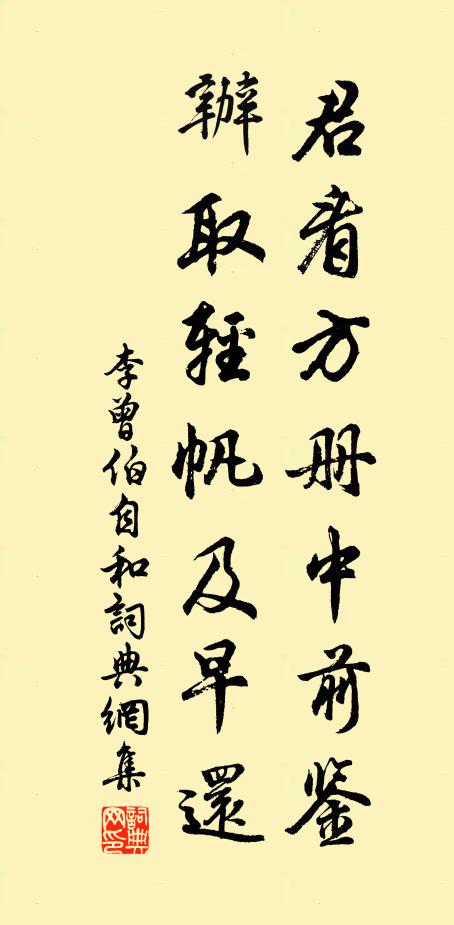 君看方册中前鉴
辦取輕帆及早還
李曾伯自和詞典網集
詞典网印